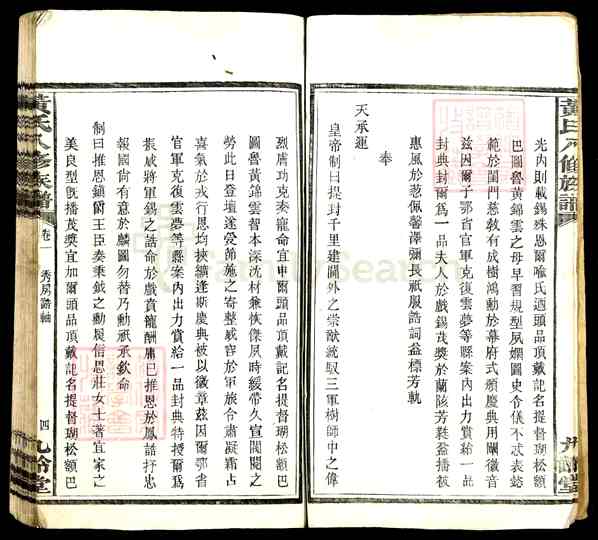 黃氏八修族譜
光內則載錫殊恩爾喻氏迺頭品頂戴記名提督瑚松額
巴圖魯黃錦雲之母早習規型夙嫻圖史令儀不忒表懿
範於閨門慈教有成樹鴻勳於幕府式頒慶典用闡徽音
茲因爾子鄂省官軍克復雲夢等縣案內出力賞給一品
封典封爾為一品夫人於戲錫茂獎於蘭陔芳蕤益播被
惠風於蕙佩馨澤彌長祇服誥詞益標芳軌
奉
天承運
皇帝制曰提封千里建閫外之崇猷統馭三軍樹師中之偉
烈膚功克奏寵命宜申爾頭品頂戴記名提督瑚松額巴
圖魯黃錦雲智本深沈材兼恢傑夙時緩帶久宣閫閾之
勞此日登壇遂受節旄之寄整威容於軍旅令肅凝霜占
喜氣於戎行恩均挾纊逢斯慶典被以徽章茲因爾鄂省
官軍克復雲夢等縣案內出力賞給一品封典特授爾為
振威將軍錫之誥命於戲賁龍酬庸已推恩於鳳誥抒忠
報國尚有意於麟圖勿替乃勳祇承欽命
制曰推恩鎮閫爵王臣奏秉鉞之勳履信思莊女士著宜家之
美良型旣播茂獎宜加爾頭品頂戴記名提督瑚松額巴
黃氏八修族譜
卷一
秀房誥軸
四
九齡堂